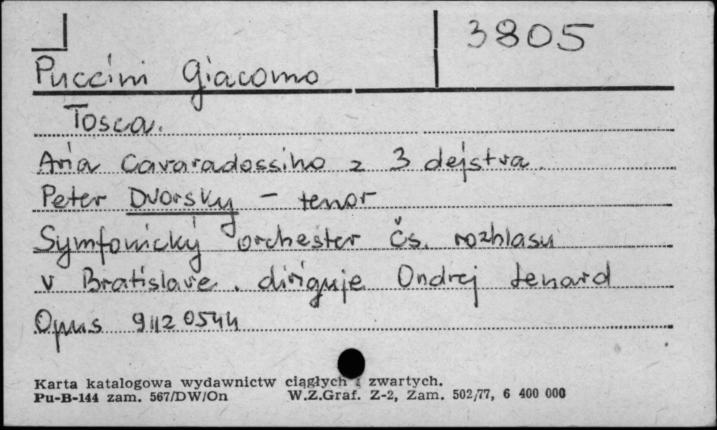 3805
Puccini Giacomo
Tosca.
Aria Cavaradossiho z 3 dejstva
Peter Dvorsky - tenor
Symfonický orchester čs. rozhlasu
v Bratislave. diriguje Ondrej Lenard
Opus 9112 0544
Karta katalogowa wydawnictw ciągłych i zwartych.
Pu-B-144 zam. 567/DW/On W.Z.Graf. Z-2, Zam. 502/77, 6 400 000